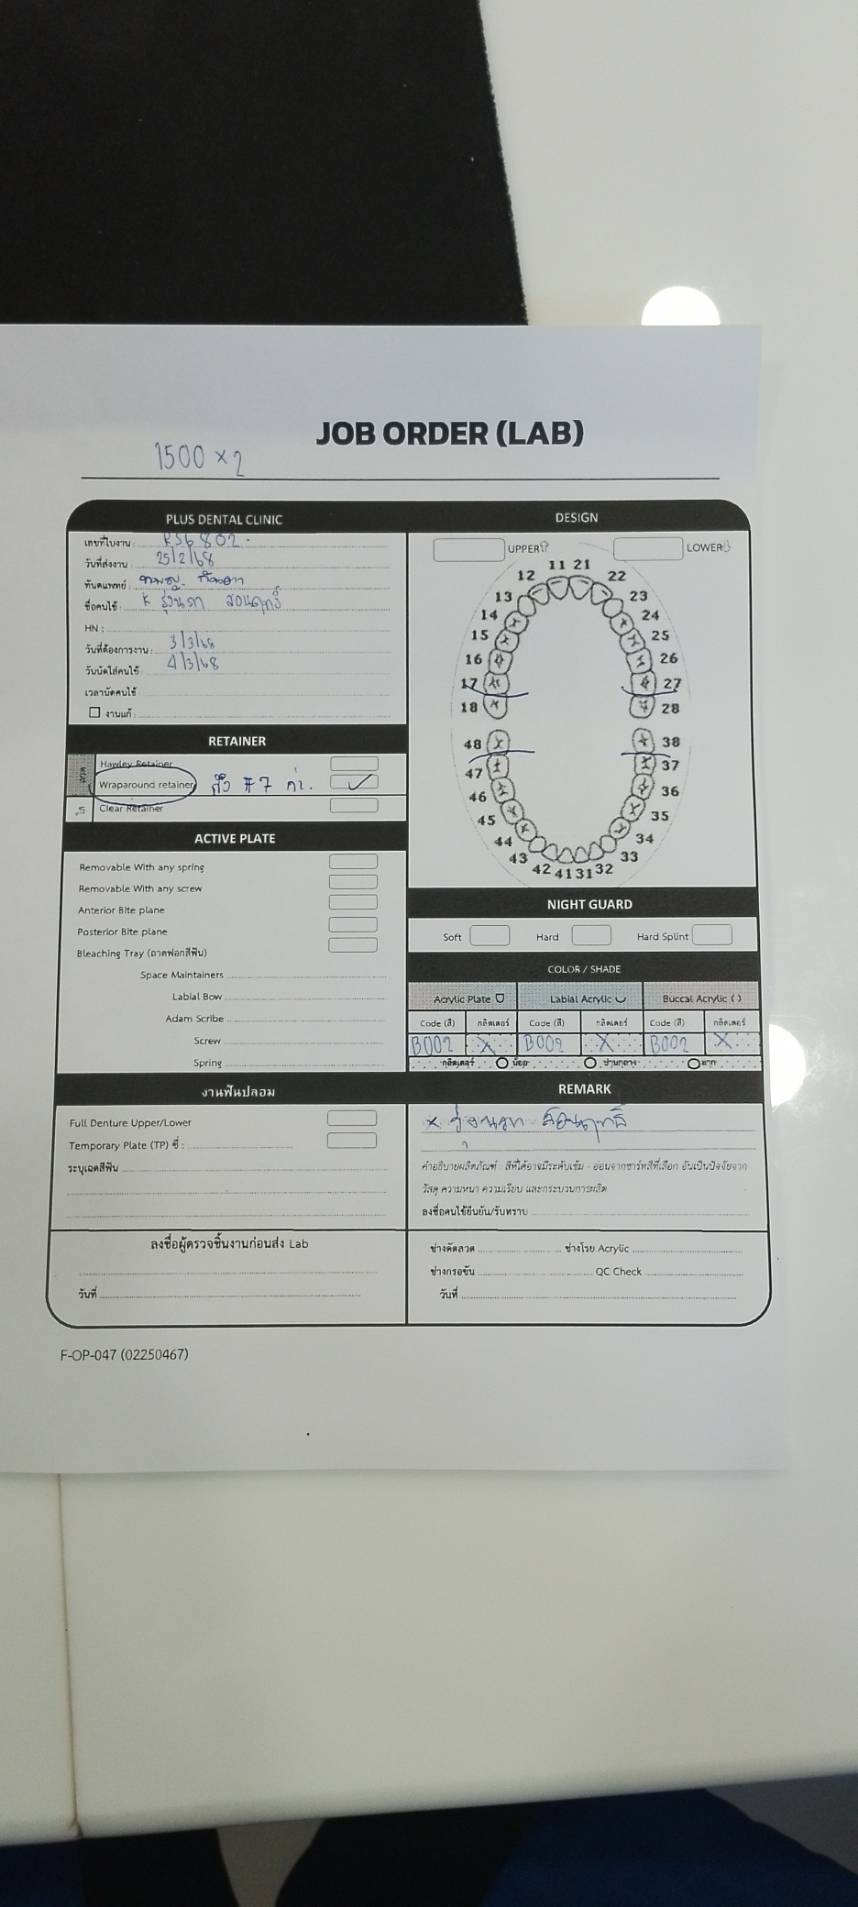 JOB ORDER (LAB)
1500 x 2
PLUS DENTAL CLINIC
เลขที่ใบงาน : RS6802
วันที่ส่งงาน : 25/2/68
ทันตแพทย์ :
ชื่อคนไข้ : K
HN :
วันที่ต้องการงาน : 3/3/68
วันนัดใส่คนไข้ 4/3/68
เวลานัดคนไข้
งานแก้ :
RETAINER
ลวด
Hawley Retainer
Wraparound retainer ถึง #7 ค่ะ. ✓
ใส
Clear Retainer
ACTIVE PLATE
Removable With any spring
Removable With any screw
Anterior Bite plane
Posterior Bite plane
Bleaching Tray (ถาดฟอกสีฟัน)
Space Maintainers
Labial Bow
Adam Scribe
Screw
Spring
งานฟันปลอม
Full Denture Upper/Lower
Temporary Plate (TP) ซี่ :
ระบุเฉดสีฟัน
ลงชื่อผู้ตรวจชิ้นงานก่อนส่ง Lab
วันที่
DESIGN
UPPER
LOWER
11 21
12 22
13 23
14 24
15 25
16 26
17 27
18 28
48 38
47 37
46 36
45 35
44 34
43 33
42 41 31 32
NIGHT GUARD
Soft Hard Hard Splint
COLOR / SHADE
Acrylic Plate Labial Acrylic Buccal Acrylic ( )
Code (สี) กลิตเตอร์ Code (สี) กลิตเตอร์ Code (สี) กลิตเตอร์
B002 X B002 X B002 X
กลิตเตอร์ น้อย ปานกลาง มาก
REMARK
วัสดุ ความหนา ความเรียบ และกระบวนการผลิต
ลงชื่อคนไข้ยืนยัน/รับทราบ
ช่างดัดลวด ช่างโรย Acrylic
ช่างกรอขัด QC Check
วันที่
F-OP-047 (02250467)